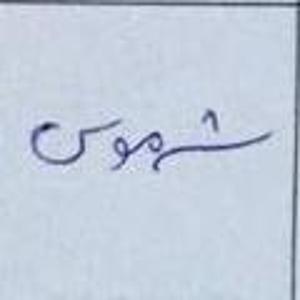 شموس